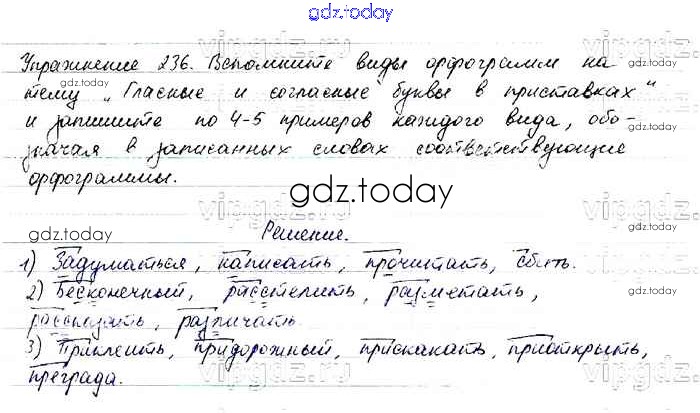 gdz.today
Упражнение 236. Вспомните виды орфограмм на
gdz.today gdz.today
тему „Гласные и согласные буквы в приставках“
и запишите по 4-5 примеров каждого вида, обо-
gdz.today
значая в записанных словах соответствующие
орфограммы.
gdz.today
vipgdz.ru
gdz.today Решение. gdz.today
1) Задуматься, написать, прочитать, сбить.
2) Бесконечный, расстелить, разметать,
gdz.today
рассказать, различать.
3) Приклеить, придорожный, прискакать, приоткрыть,
gdz.today
преграда.